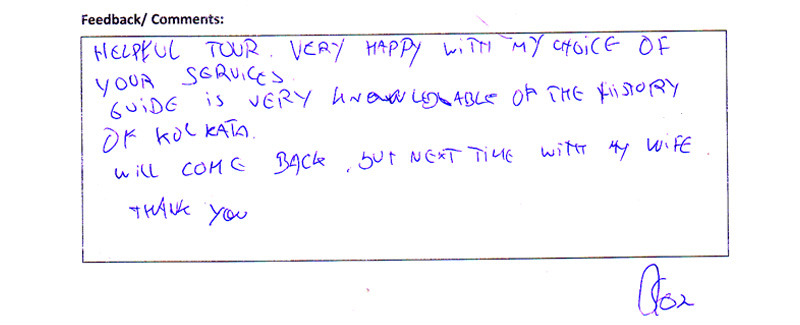 Feedback/ Comments:
HELPFUL TOUR. VERY HAPPY WITH MY CHOICE OF
YOUR SERVICES.
GUIDE is VERY KNOWLEDABLE OF THE HISTORY
OF KOLKATA.
WILL COME BACK, BUT NEXT TIME WITH MY WIFE.
THANK YOU